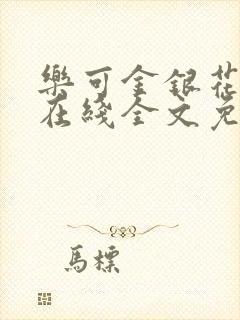 樂可金銀花
在綫全文免
馬標